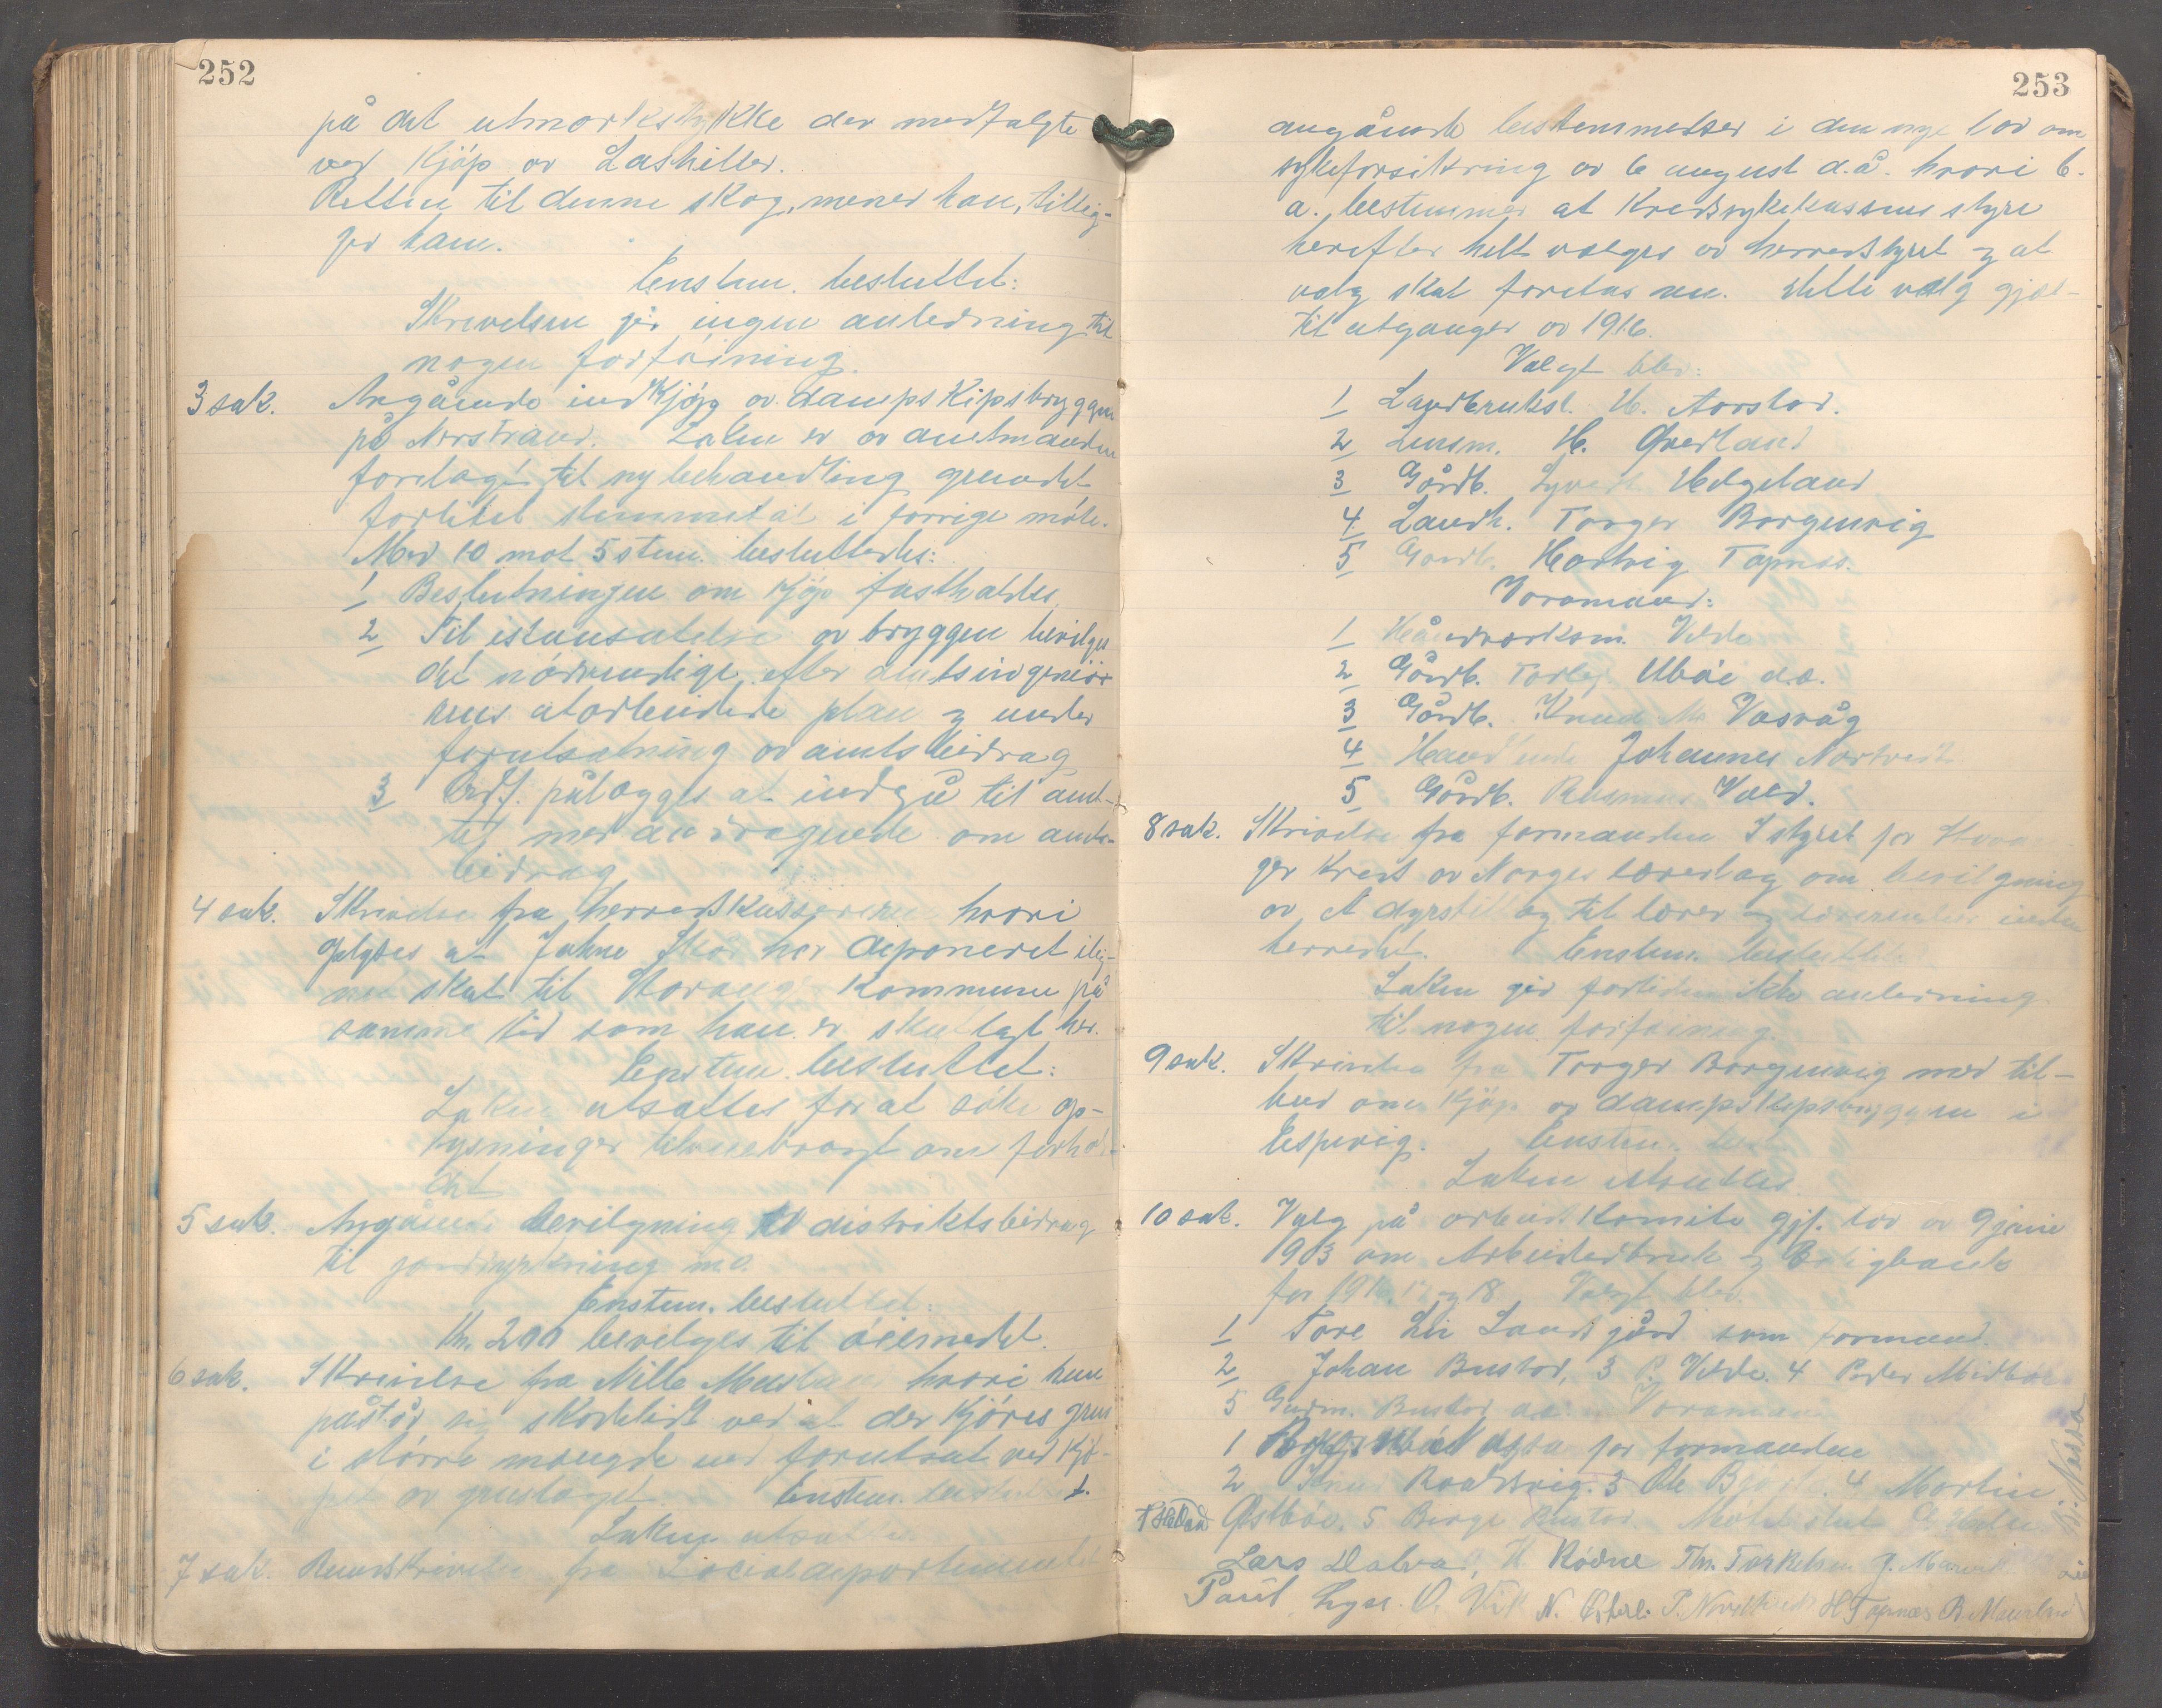 252
på det utmarkstykke der medfulgte
ved kjöp av Lashiller.
Retten til denne skog, mener han, tillig-
ger ham.
Enstem. besluttet:
Skrivelsen gir ingen anledning til
nogen forföining.
3 sak. Angående indkjöp av dampskipsbryggen
på Nerstrand. Saken er av amtmanden
forelagt til ny behandling grundet
forlitet stemmetal i forrige möte.
Med 10 mot 5 stem. besluttedes:
1 Beslutningen om kjöp fastholdes
2 Til istandsættelse av bryggen bevilges
det nödvendige efter amtsingeniör
ens utarbeidede plan og under
forutsætning av amtsbidrag
3 Ordf. pålægges at indgå til amt-
et med andragende om amts-
bidrag
4 sak. Skrivelse fra herredskassereren hvori
oplyses at Johne Skor har deponeret ilig-
net skat til Stavanger kommune på
samme tid som han er skattlagt her.
Enstem. besluttet:
Saken utsættes for at söke op-
lysninger tilveiebragt om forhol-
det
5 sak. Angående bevilgning til distriktsbidrag
til jorddyrkning m.v.
Enstem. besluttet:
Kr. 200 bevilges til öiemedet.
6 sak. Skrivelse fra Nille hvori hun
påstår sig skadelidt ved at der kjöres grus
i större mængde end forutsat ved kjö-
pet av grustaget. Enstem. besluttet.
Saken utsættes
7 sak. Rundskrivelse fra Socialdepartementet
253
angående bestemmelser i den nye lov om
sykeforsikring av 6 august d.å. hvori b.
a. bestemmes at Kredssykekassens styre
herefter helt vælges av herredstyret og at
valg skal foretas nu. Dette valg gjæl-
til utgangen av 1916.
Valgt blev:
1 Landbruksl. H. Aarstad.
2 Lensm. H. Qverland
3 Gårdb. Syvert Helgeland
4 Landh. Torger Borgenvig
5 Gårdb. Hartvig Tapnes.
Varamænd:
1 Håndverksm. Velde
2 Gårdb. Torleif Uböe d.æ.
3 Gårdb. Knud M. Vasvåg
4 Johannes Nærtvedt
5 Gårdb. Rasmus Vaed.
8 sak. Skrivelse fra formanden i styret for
ger kreds av Norges lærerlag om bevilgning
av et dyrtillæg til lærer og lærerinder inden
herredet. Enstem. besluttet
Saken gir fortiden ikke anledning
til nogen forföining.
9 sak. Skrivelse fra Torger Borgenvig med til-
bud om kjöp av dampskipsbryggen i
Espevig. Enstem. besl.
Saken utsættes.
10 sak. Valg på arbeidskomite gjf. lov av 9 juni
1903 om Arbeiderbruk og Boligbank
for 1916, 17 og 18 Valgt blev
1 Tore Li Landsgård som formand.
2 Johan Bustad, 3 P. Velde. 4 Peder Midtböe
5 Gudm. Bustad Varamænd
1 for formanden
2 Knud Roaldsvig. 3 Ole 4 Martin
Østböe, 5 Börge Bustad Mötet slut
Lars Dalva, H. Rödne Thr. Torkelsen
Paul Lyse. O. Vik N. Østerli H Tapnes
B. Næssa